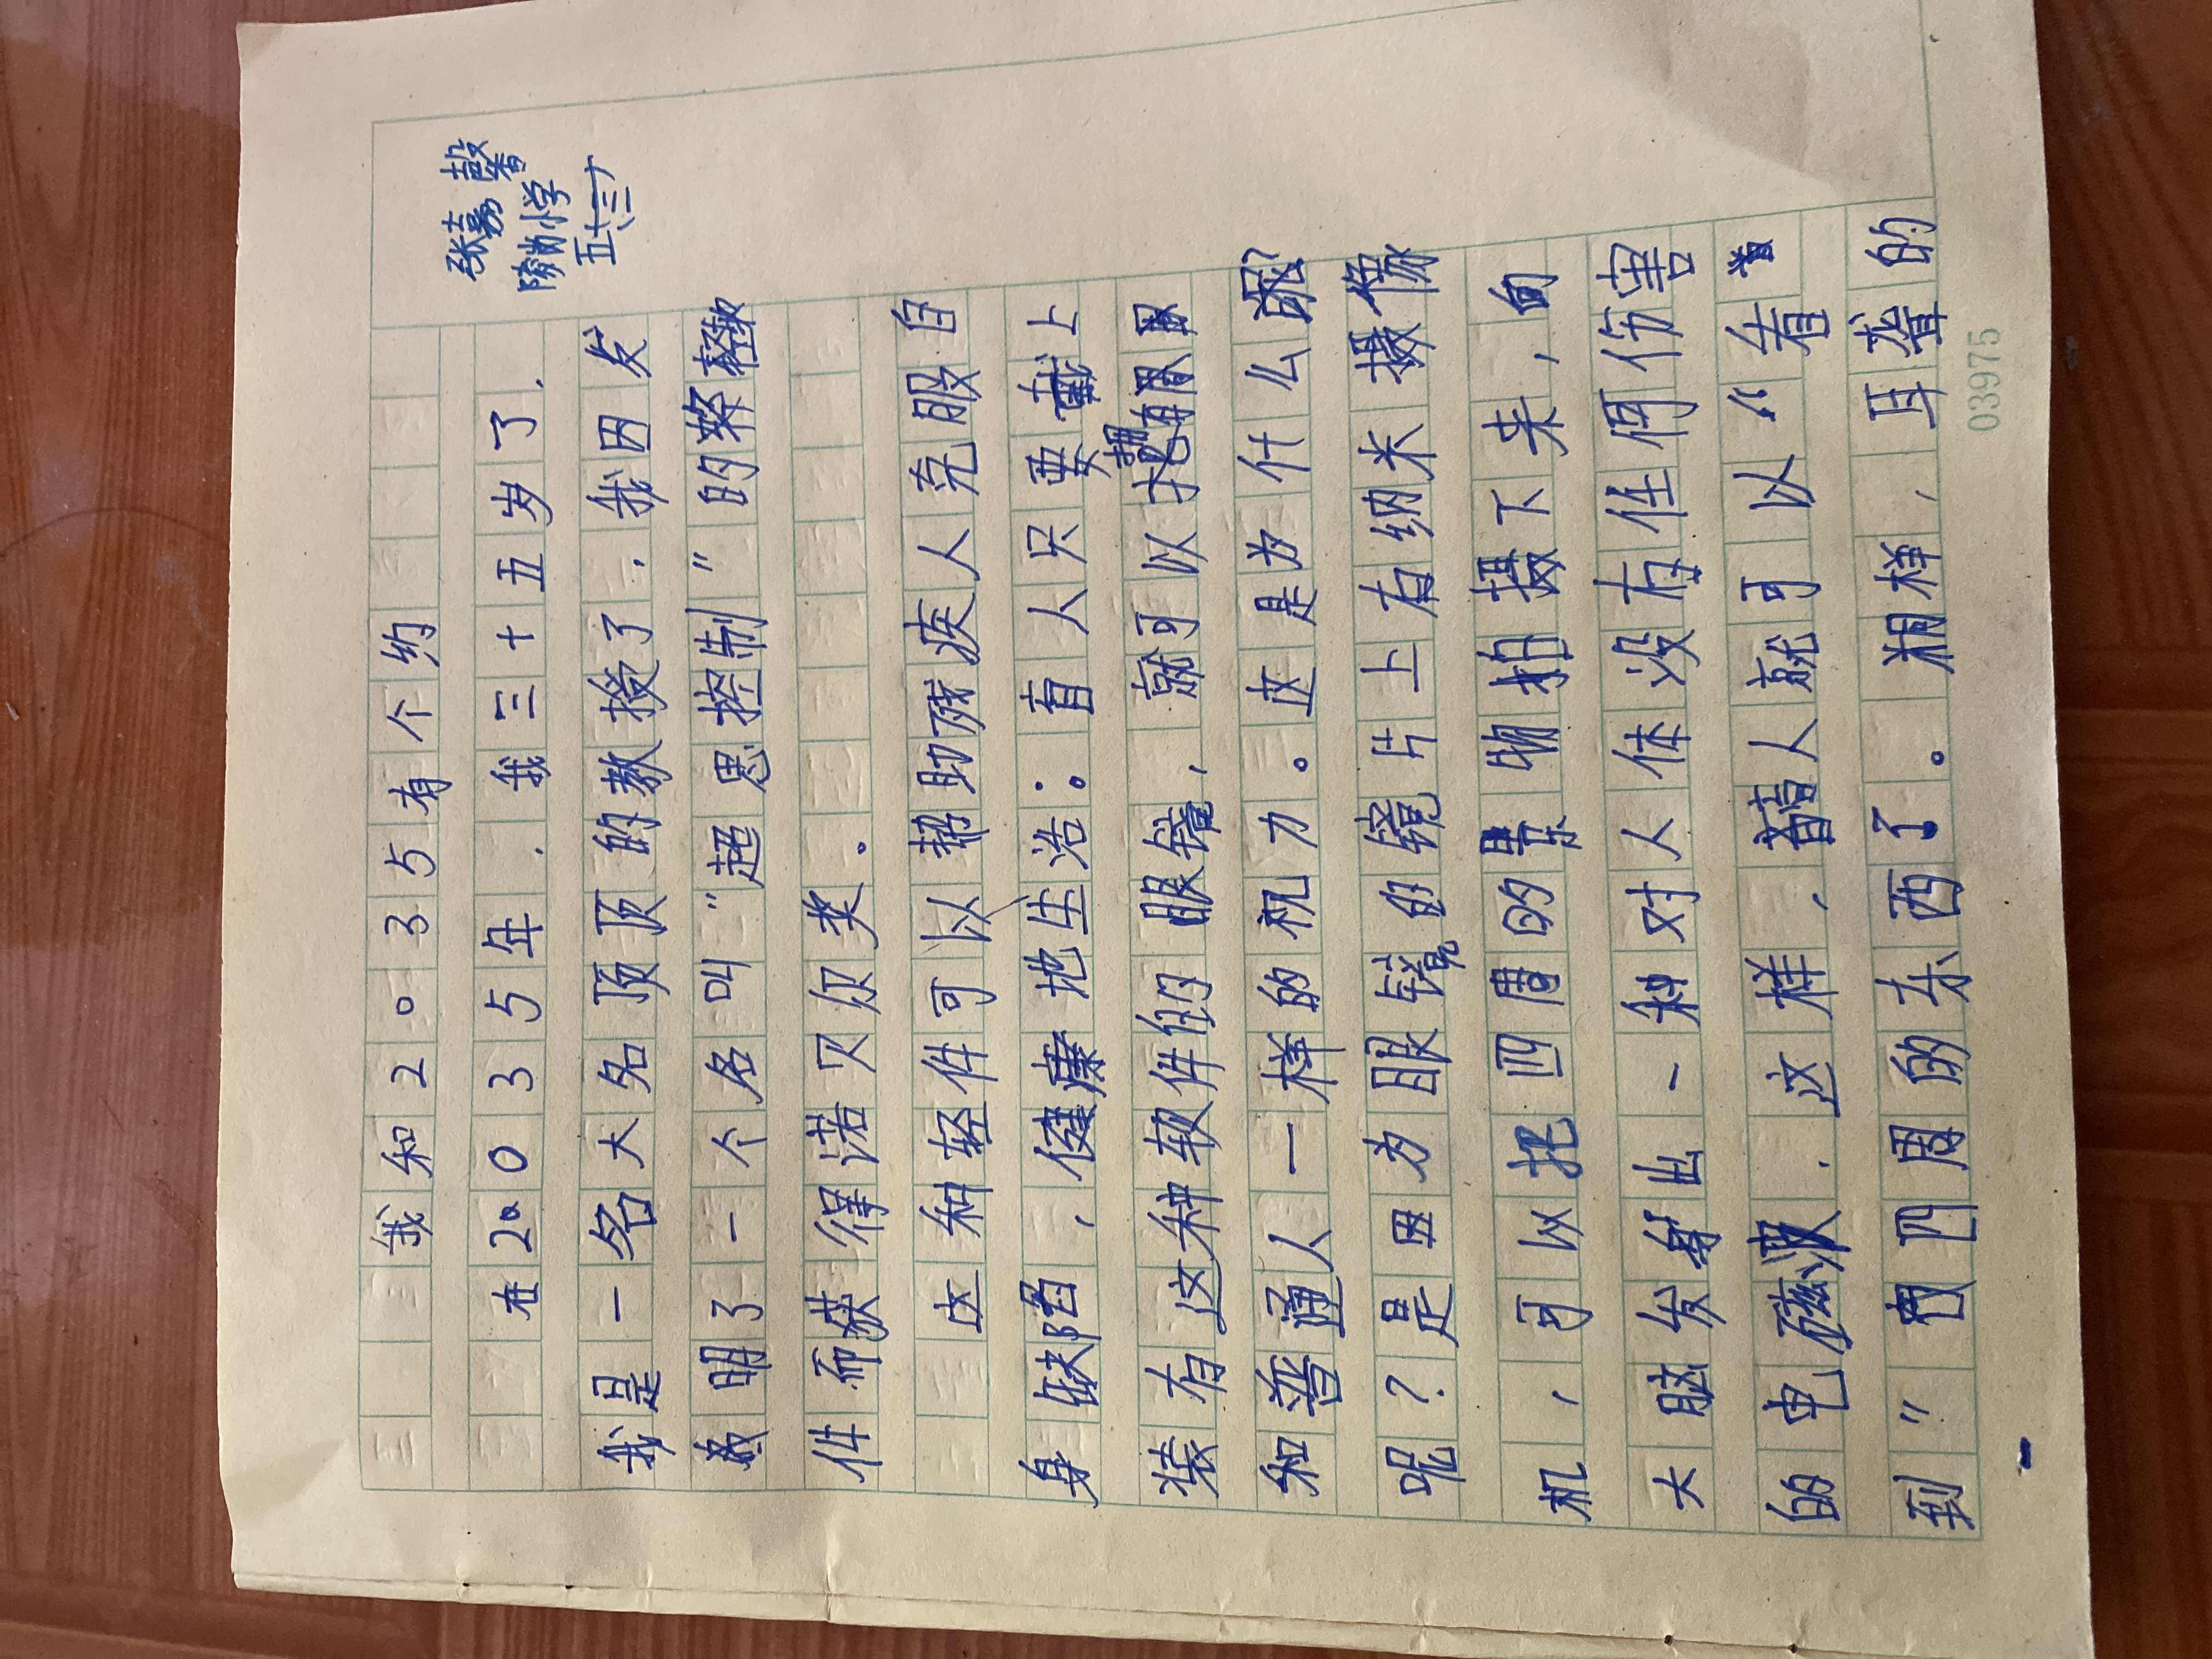 张嘉馨
陵西小学
五十(三)
我和2035有个约
在2035年,我三十五岁了,
我是一名大名顶顶的教授了,我因发
明了一个名叫“超思控制”的轻软
件而获得诺贝尔奖。
这种轻件可以帮助残疾人克服自
身缺陷,健康地生活:盲人只要戴上
装有这种软件的眼镜,就可以拥有
和普通人一样的视力。这是为什么呢?
呢?是因为眼镜的镜片上有纳米摄像
机,可以把四周的景物拍摄下来,向
大脑发射出一种对人体没有任何伤害
的电磁波,这样,盲人就可以“看
到”四周的东西了。相样,耳聋的
039975